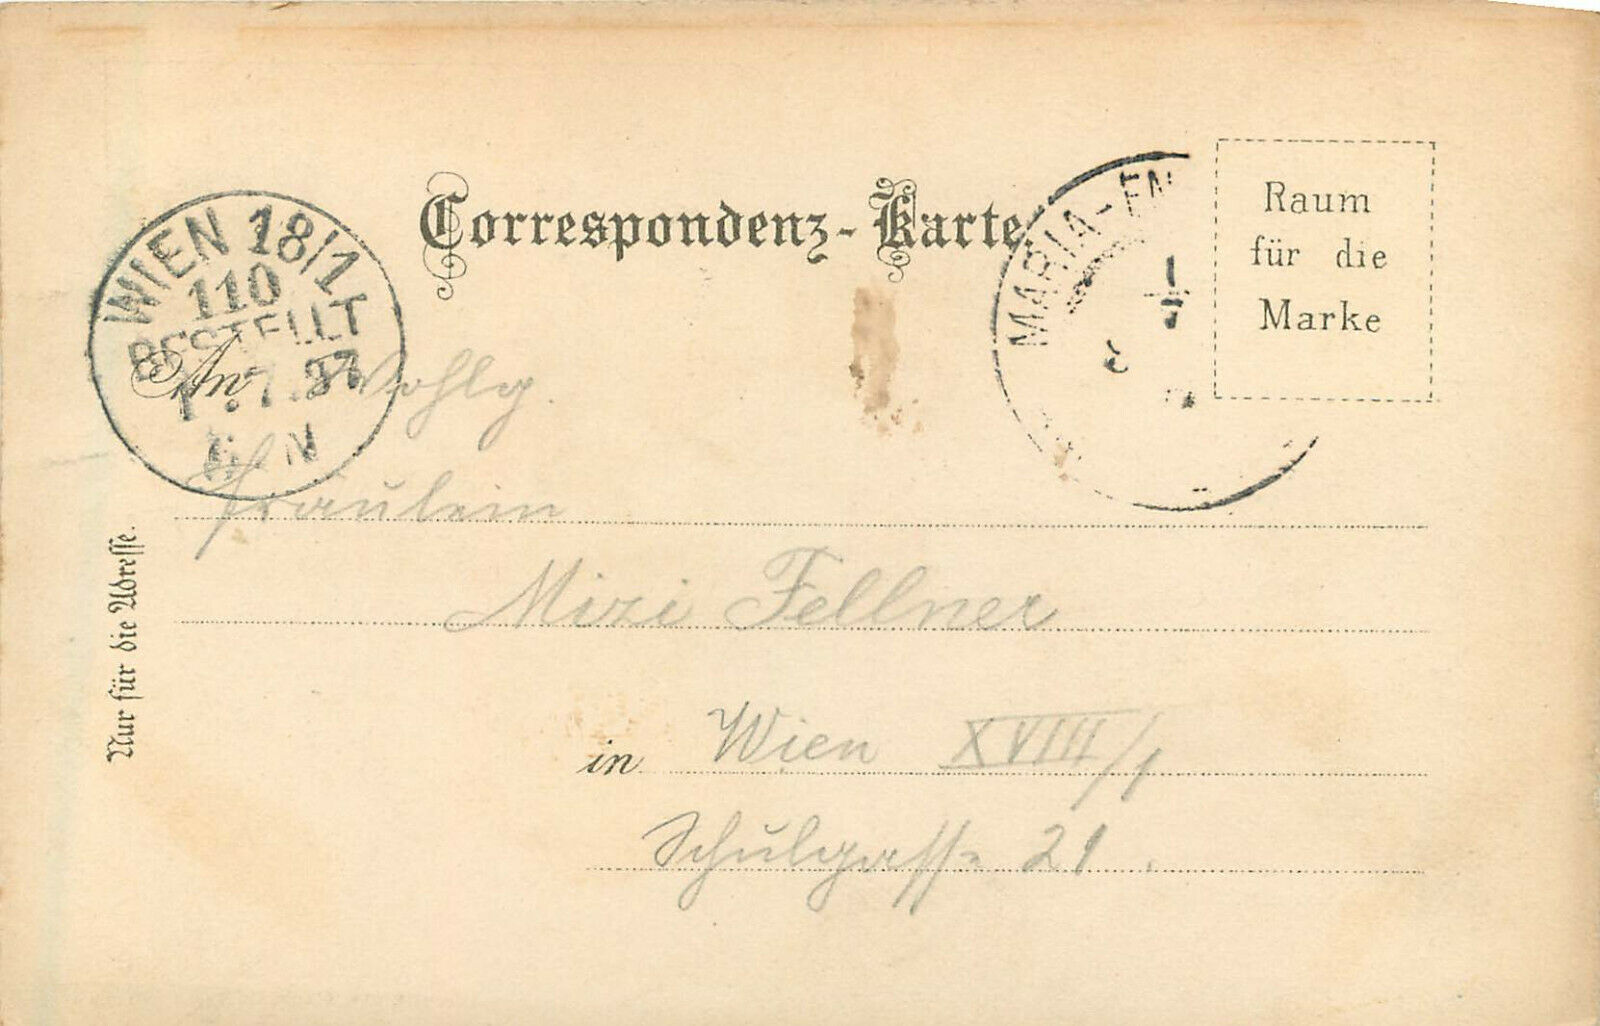 Correspondenz-Karte.
Raum
für die
Marke
WIEN 18/1
110
BESTELLT
7.97
N
MARIA-EN
An Wohlg.
Fräulein
Mizi Fellner
in Wien XVIII/1
Schulgasse 21.
Nur für die Adresse.